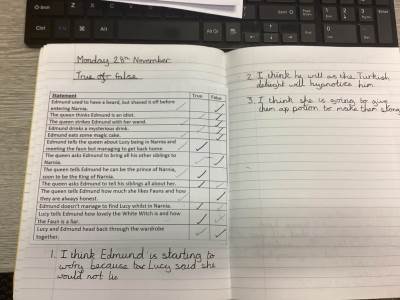 Monday 28th November
True or False
Statement True False
Edmund used to have a beard, but shaved it off before
entering Narnia.
The queen thinks Edmund is an idiot.
The queen strikes Edmund with her wand.
Edmund drinks a mysterious drink.
Edmund eats some magic cake.
Edmund tells the queen about Lucy being in Narnia and
meeting the faun but managing to get back home
The queen asks Edmund to bring all his other siblings to
Narnia.
The queen tells Edmund he can be the prince of Narnia,
soon to be the King of Narnia.
The queen asks Edmund to tell his siblings all about her.
The queen tells Edmund how much she likes Fauns and how
they are always honest.
Edmund doesn't manage to find Lucy whilst in Narnia.
Lucy tells Edmund how lovely the White Witch is and how
the Faun is a liar.
Lucy and Edmund head back through the wardrobe
together.
1. I think Edmund is starting to
worry because Lucy said she
would not lie
2. I think he will as the Turkish
delight will hypnotise him.
3. I think she is going to give
them a potion to make them